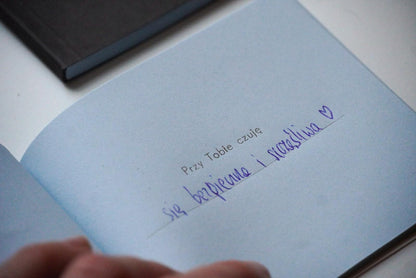 Przy Tobie czuję
się bezpieczna i szczęśliwa ♡